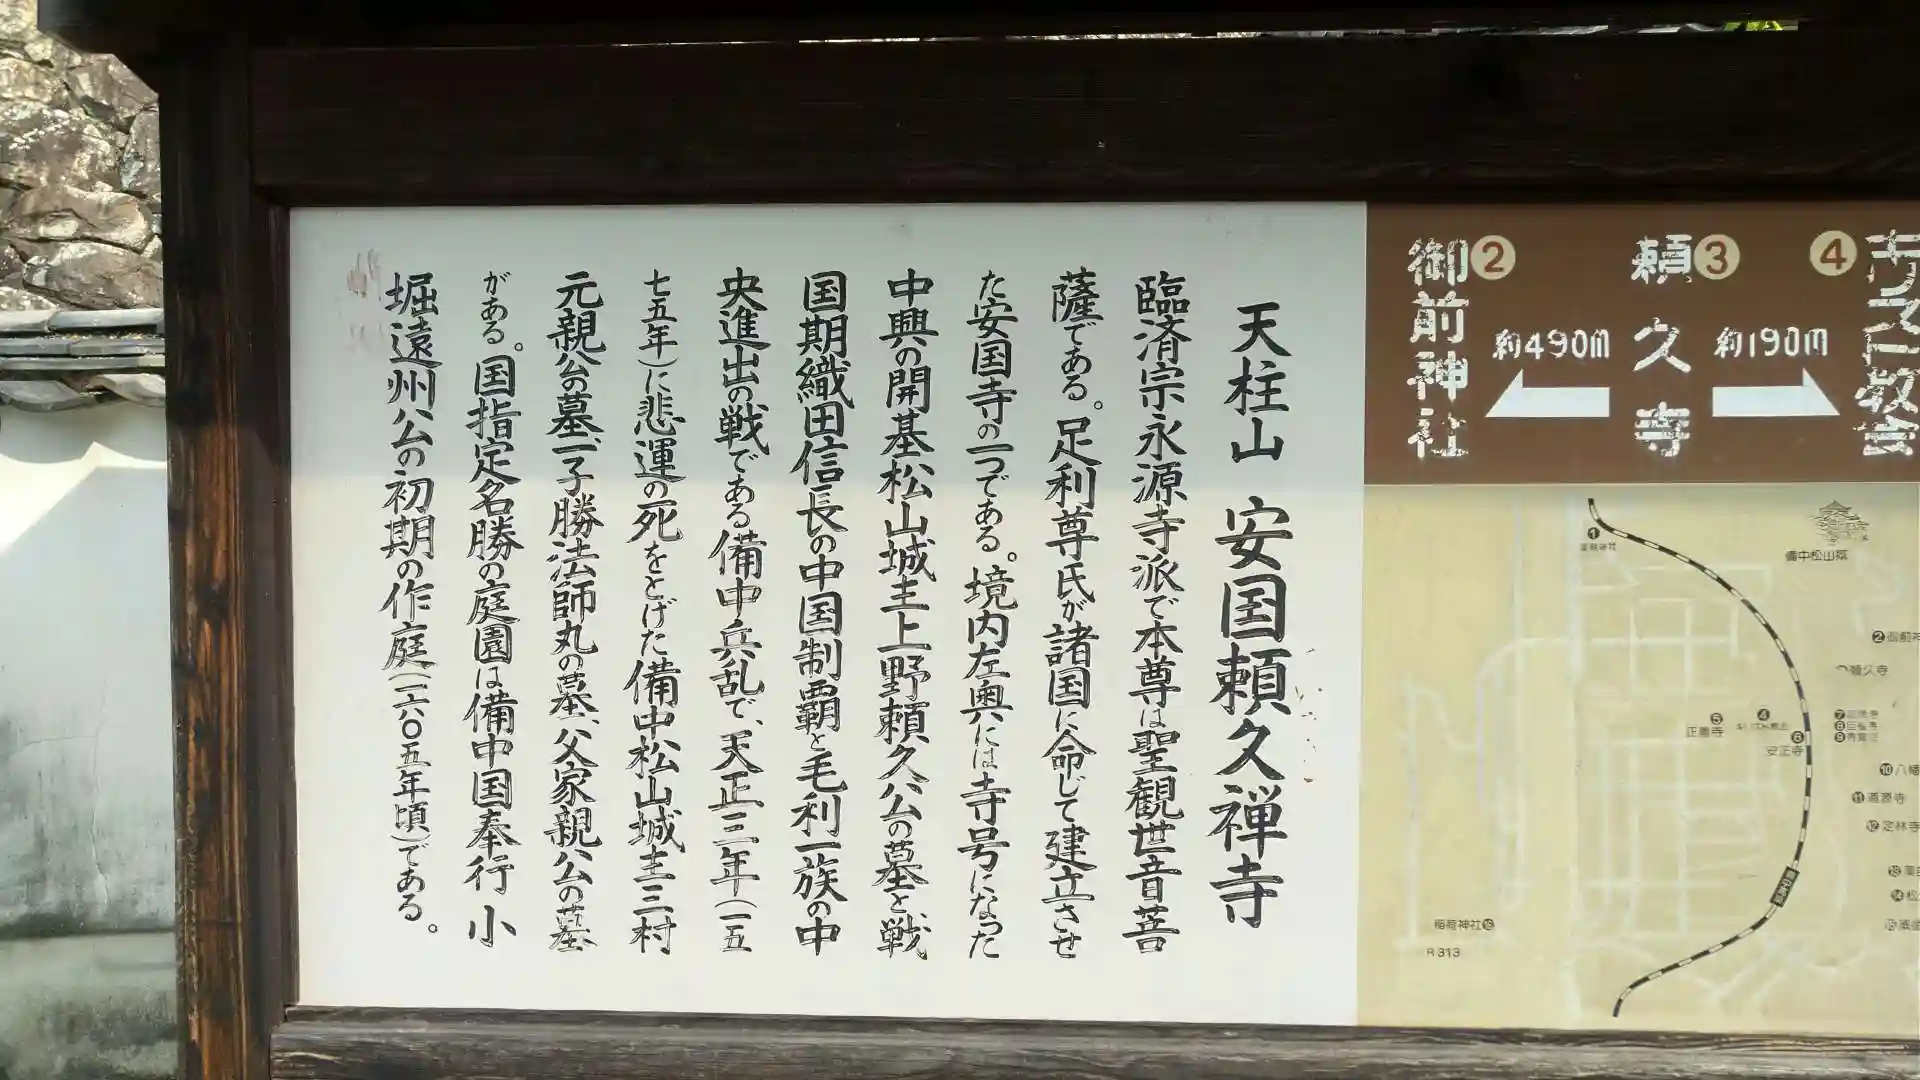 天柱山 安国頼久禅寺
臨済宗永源寺派で本尊は聖観世音菩
薩である。足利尊氏が諸国に命じて建立させ
た安国寺の一つである。境内左奥には寺号になった
中興の開基松山城主上野頼久公の墓と戦
国期織田信長の中国制覇と毛利一族の中
央進出の戦である備中兵乱で、天正三年(一五
七五年)に悲運の死をとげた備中松山城主三村
元親公の墓、子勝法師丸の墓、父家親公の墓
がある。国指定名勝の庭園は備中国奉行 小
堀遠州公の初期の作庭(一六〇五年頃)である。
②
御前神社
約490m
③
頼久寺
約190m
④
キリスト教会
備中松山城
①
②御前神
頼久寺
④
⑤
正善寺
⑥
安正寺
⑦
⑧
⑨
⑩八幡
⑪道源寺
⑫定林寺
⑬
⑭松
⑮
稲荷神社⑯
R313